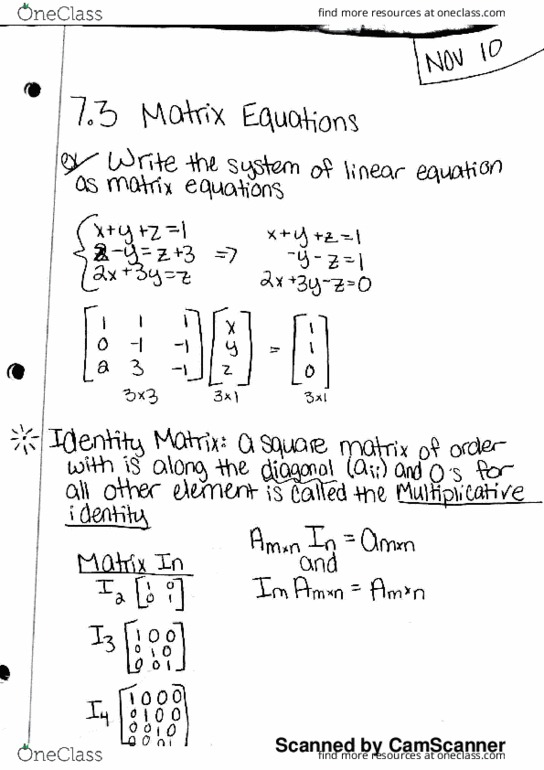 OneClass find more resources at oneclass.com
NOV 10
7.3 Matrix Equations
ex/ Write the system of linear equation
as matrix equations
x+y+z=1 x+y+z=1
2-y=z+3 => -y-z=1
2x+3y=z 2x+3y-z=0
1 1 1 x 1
0 -1 -1 y = 1
2 3 -1 z 0
3x3 3x1 3x1
Identity Matrix: a square matrix of order
with is along the diagonal (aii) and 0's for
all other element is called the Multiplicative
identity
Amxn In = amxn
Matrix In and
I2 1 0 Im Amxn = Amxn
0 1
I3 1 0 0
0 1 0
0 0 1
I4 1 0 0 0
0 1 0 0
0 0 1 0
0 0 0 1
Scanned by CamScanner
OneClass find more resources at oneclass.com